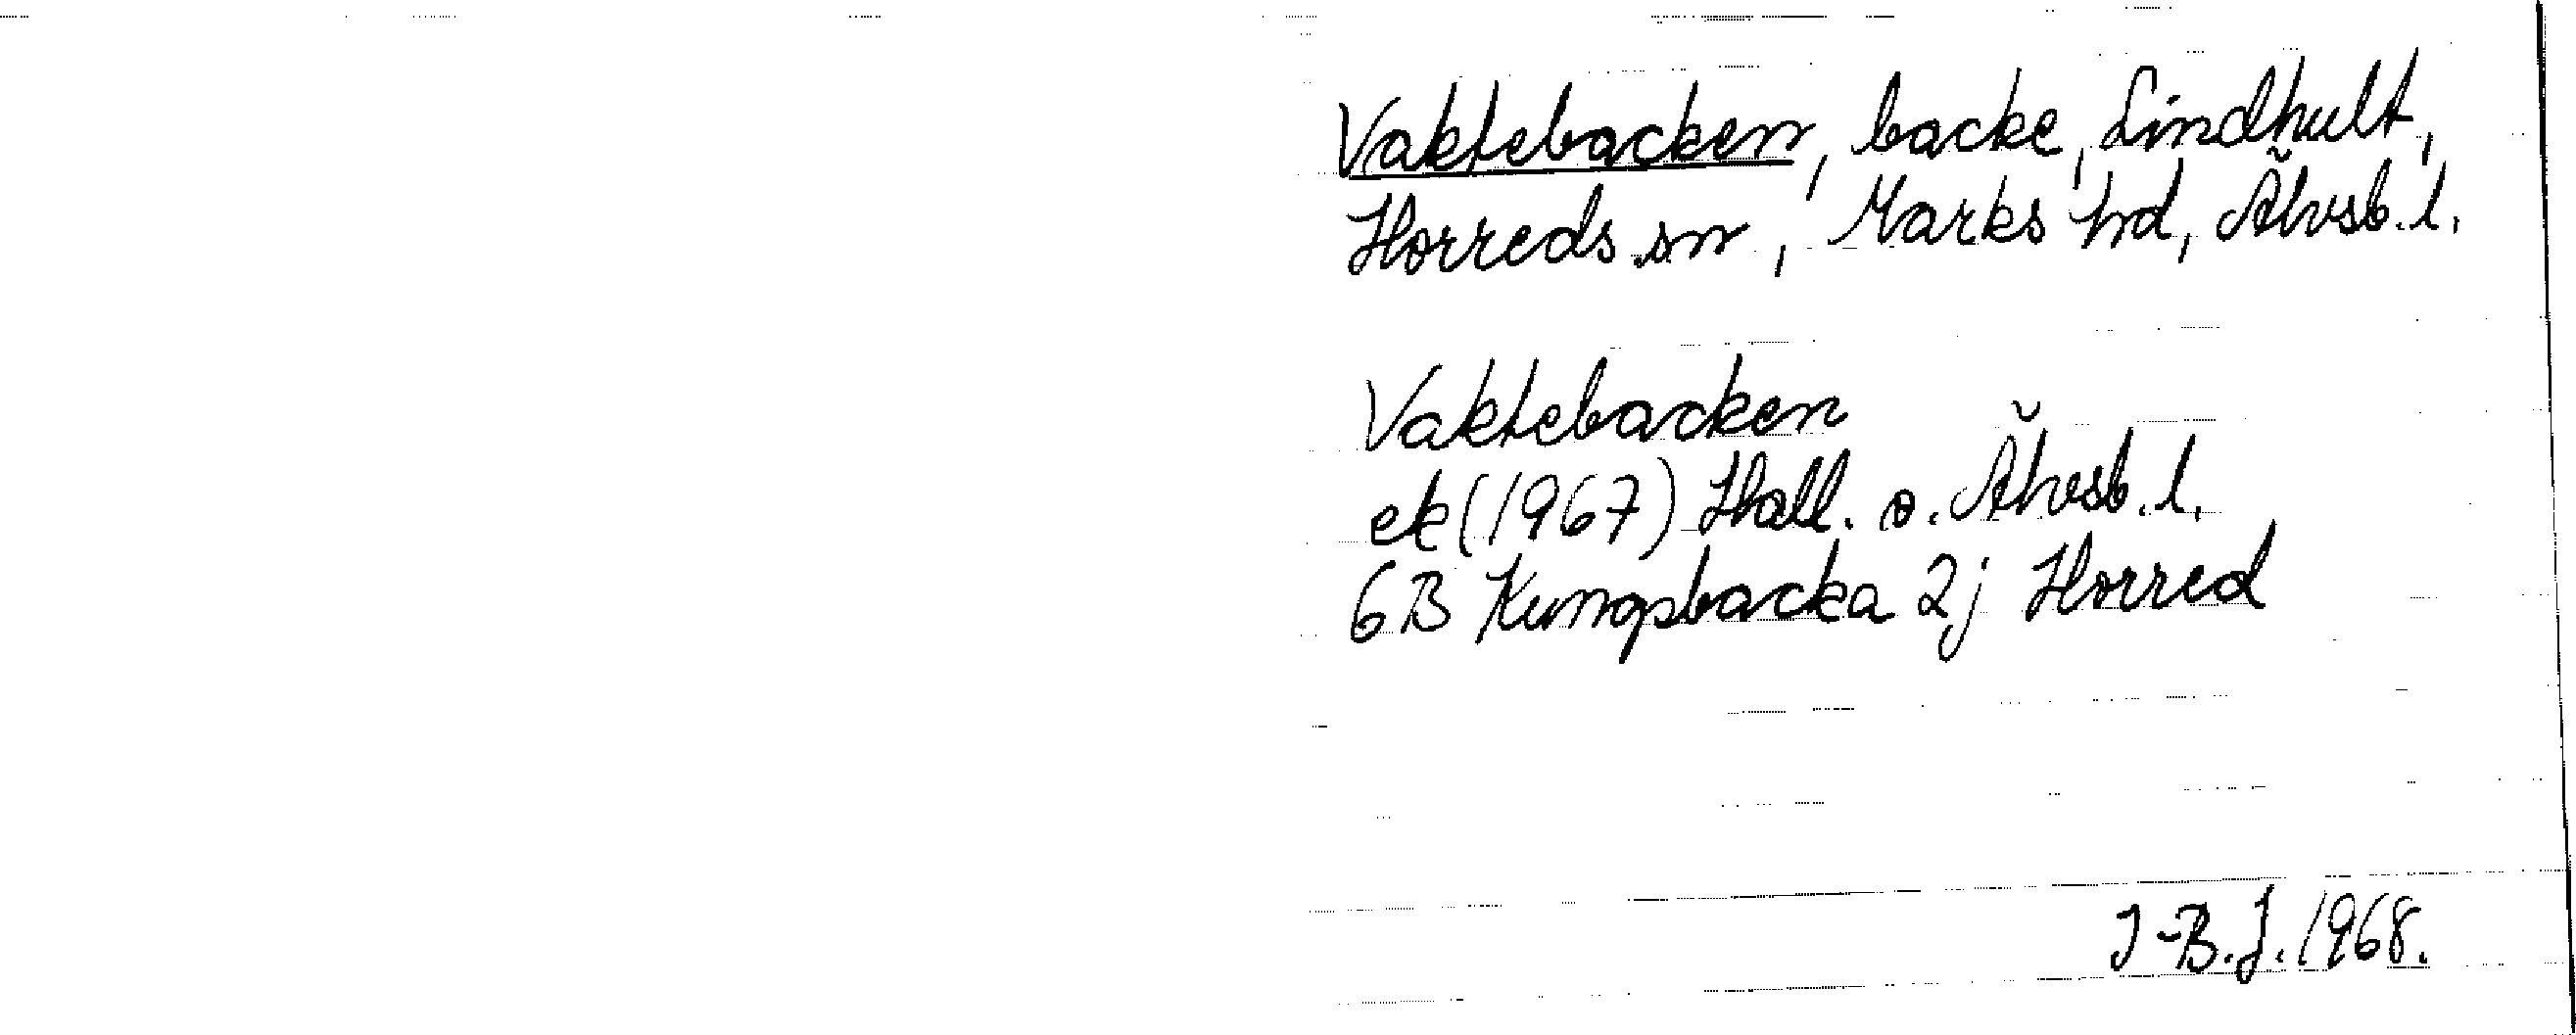 Vaktebacken, backe, Lindhult,
Horreds sn, Marks hd, Älvsb. l.
Vaktebacken
ek (1967) Hall. o. Älvsb. l.
6B Kungsbacka 2j Horred
I-B. J. 1968.